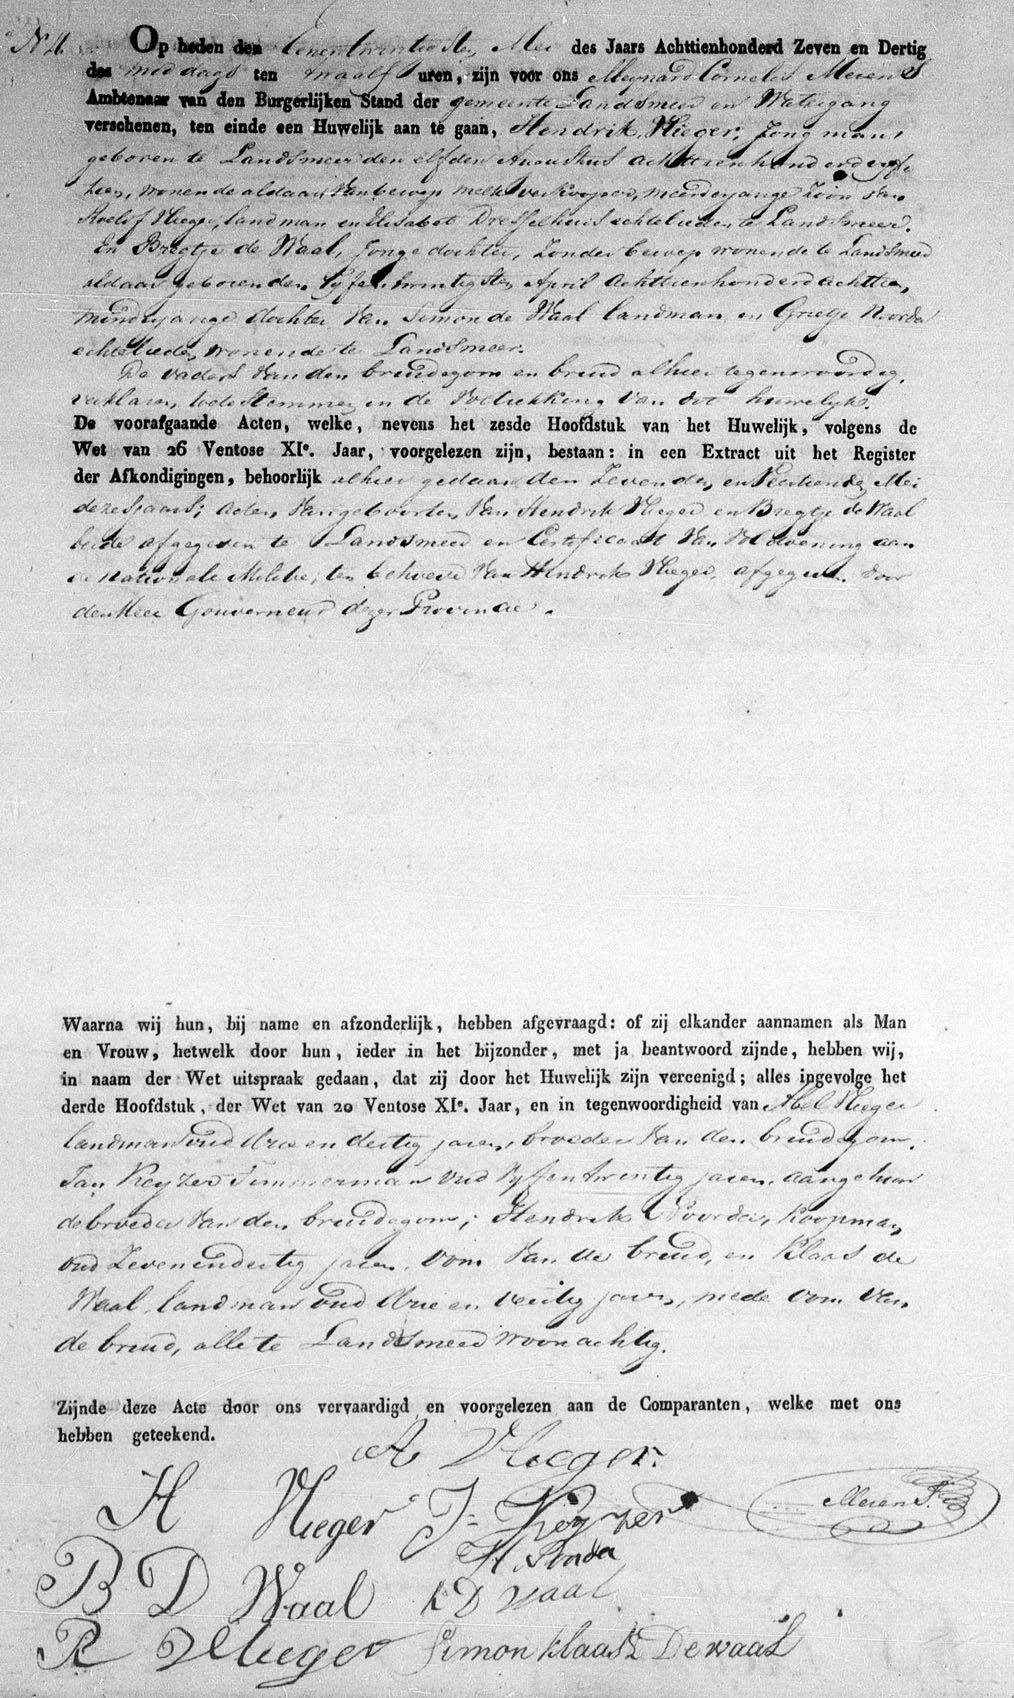 N 4.
Op heden den Eenentwintigsten Mei des Jaars Achttienhonderd Zeven en Dertig
des middags ten twaalf uren, zijn voor ons Meynard Cornelis Merens
Ambtenaar van den Burgerlijken Stand der gemeente Landsmeer en Watergang
verschenen, ten einde een Huwelijk aan te gaan, Hendrik Vlieger, Jong man
geboren te Landsmeer den elfden Augustus achttienhonderd vyf
tien, wonende aldaar van beroep melkverkooper, meerderjarige Zoon van
Roelof Vlieger, landman en Elisabet Dresselhuis echtelieden te Landsmeer.
En Bregtje de Waal, Jonge dochter, Zonder beroep wonende te Landsmeer
aldaar geboren den Vyfentwintigsten April achttienhonderd achttien,
minderjarige dochter van Simon de Waal landman en Grietje Noorda
echtelieden wonende te Landsmeer.
De vaders van den bruidegom en bruid alhier tegenwoordig,
verklaren, toe te Stemmen in de Voltrekking van dit huwelijk.
De voorafgaande Acten, welke, nevens het zesde Hoofdstuk van het Huwelijk, volgens de
Wet van 26 Ventose XIe. Jaar, voorgelezen zijn, bestaan: in een Extract uit het Register
der Afkondigingen, behoorlijk alhier gedaan den Zevenden en Veertienden Mei
dezes Jaars; acten van geboorten van Hendrik Vlieger en Bregtje de Waal
beide afgegeven te Landsmeer en Certificaat van Voldoening aan
de nationale Militie, ten behoeve van Hendrik Vlieger, afgegeven door
den Heer Gouverneur dezer Provincie.
Waarna wij hun, bij name en afzonderlijk, hebben afgevraagd: of zij elkander aannamen als Man
en Vrouw, hetwelk door hun, ieder in het bijzonder, met ja beantwoord zijnde, hebben wij,
in naam der Wet uitspraak gedaan, dat zij door het Huwelijk zijn vereenigd; alles ingevolge het
derde Hoofdstuk, der Wet van 20 Ventose XIe. Jaar, en in tegenwoordigheid van Abel Vlieger
landman oud drie en dertig jaren, broeder van den bruidegom.
Jan Keyzer Timmerman oud Vyfentwintig jaren, aangehuw
de broeder van den bruidegom; Hendrik Noorda, koopman,
oud Zevenendertig jaren, oom van de bruid, en Klaas de
Waal, landman oud drie en veertig jaren, mede oom van
de bruid, alle te Landsmeer woonachtig.
Zijnde deze Acte door ons vervaardigd en voorgelezen aan de Comparanten, welke met ons
hebben geteekend.
A Vlieger.
H Vlieger J= Keyzer Merens
H. Norda
B D Waal K D Waal
R Vlieger Simon klaasz De waal